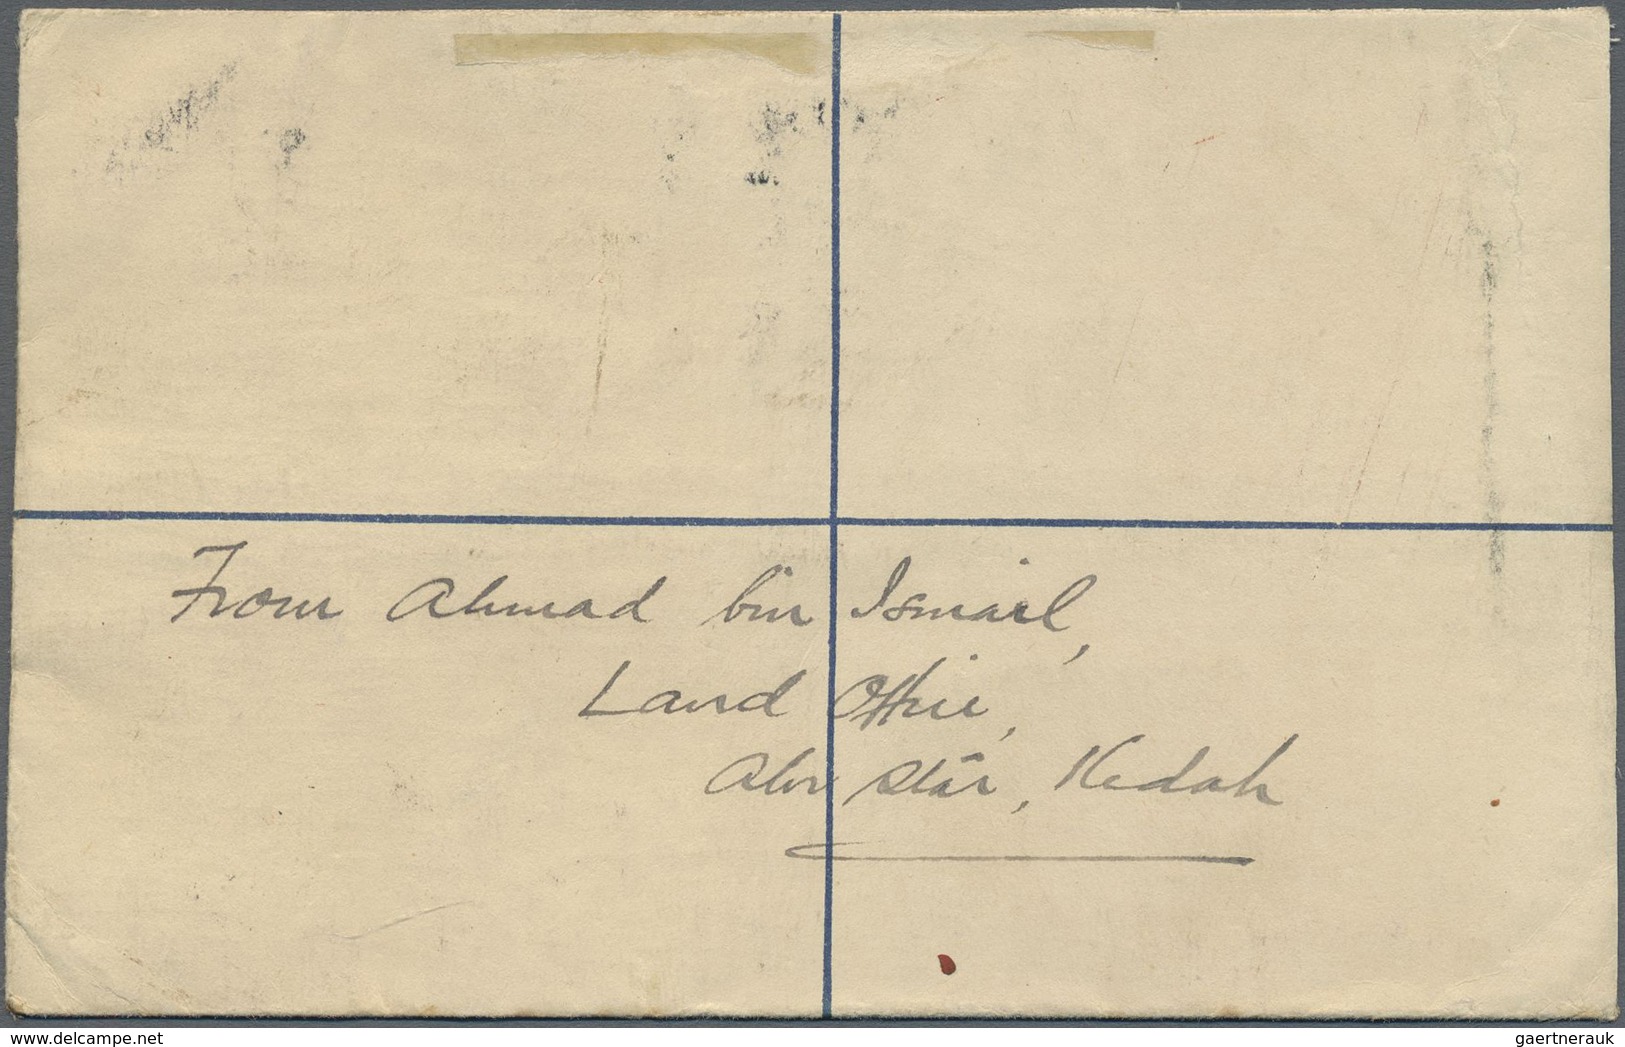 From Ahmad bin Ismail,
Land Office,
Alor Stár, Kedah
delcampe.net
gaertnerauk